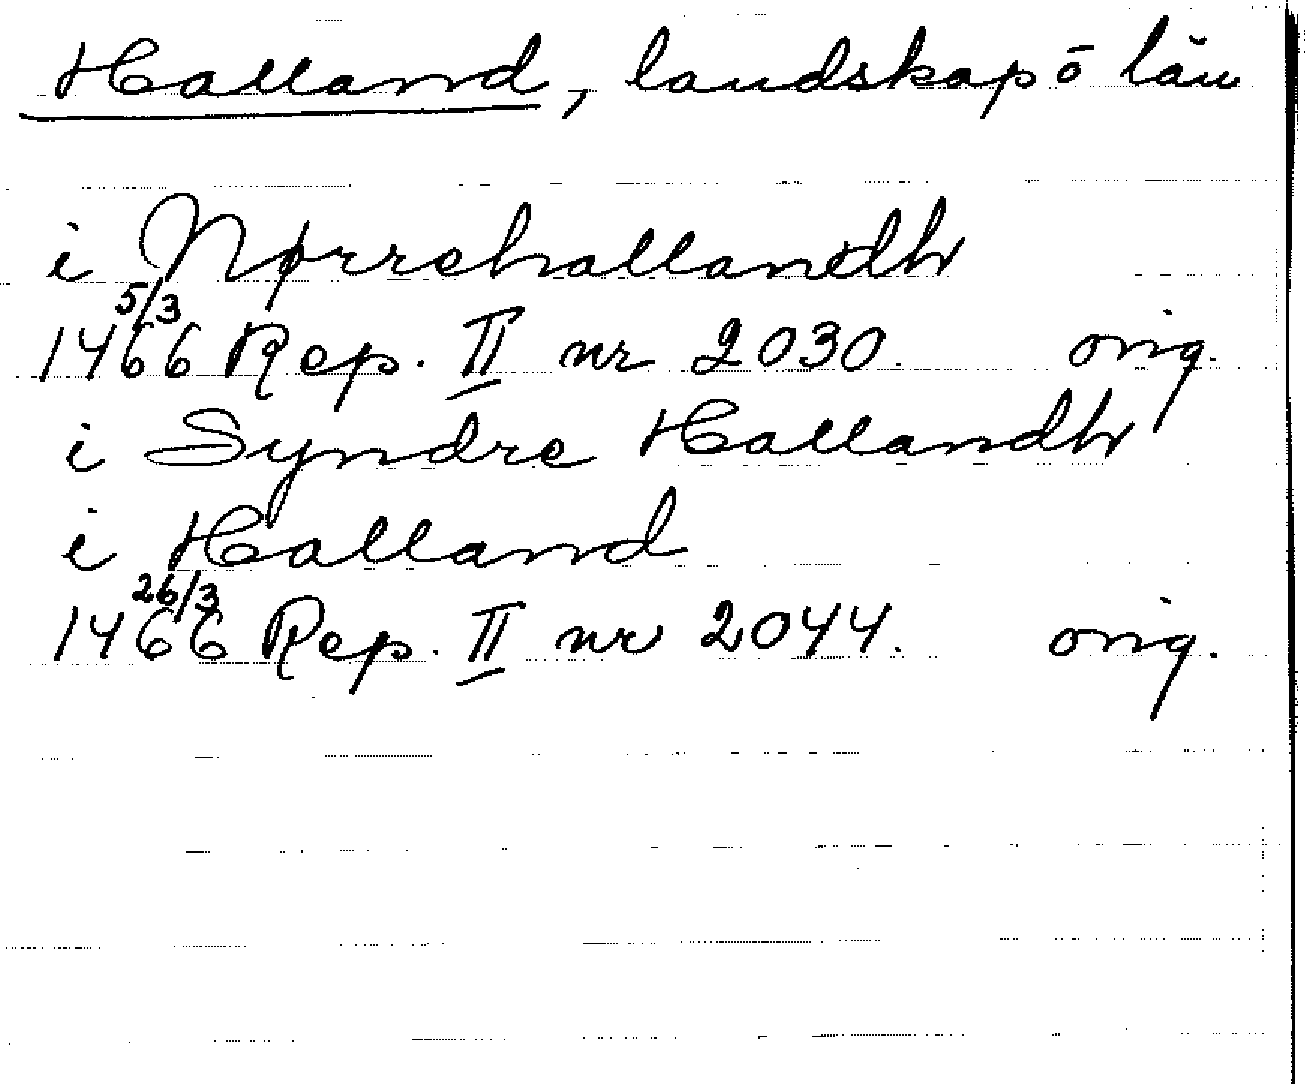 Halland, landskap ō län
i Nørrehallandh
5/3
1466 Rep. II nr 2030. orig.
i Syndre Hallandh
i Halland
26/3
1466 Rep. II nr 2044. orig.